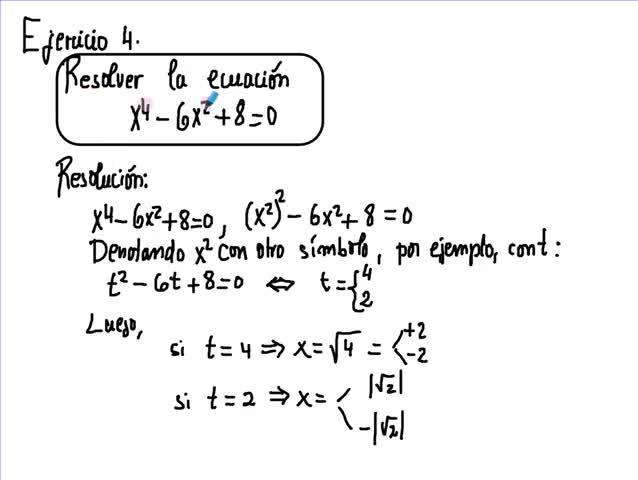 Ejercicio 4.
Resolver la ecuación
x⁴ - 6x² + 8 = 0
Resolución:
x⁴ - 6x² + 8 = 0, (x²)² - 6x² + 8 = 0
Denotando x² con otro símbolo, por ejemplo, con t:
t² - 6t + 8 = 0 ⇔ t = { 4
2
Luego,
si t = 4 ⇒ x = √4 = < +2
-2
si t = 2 ⇒ x = < |√2|
-|√2|